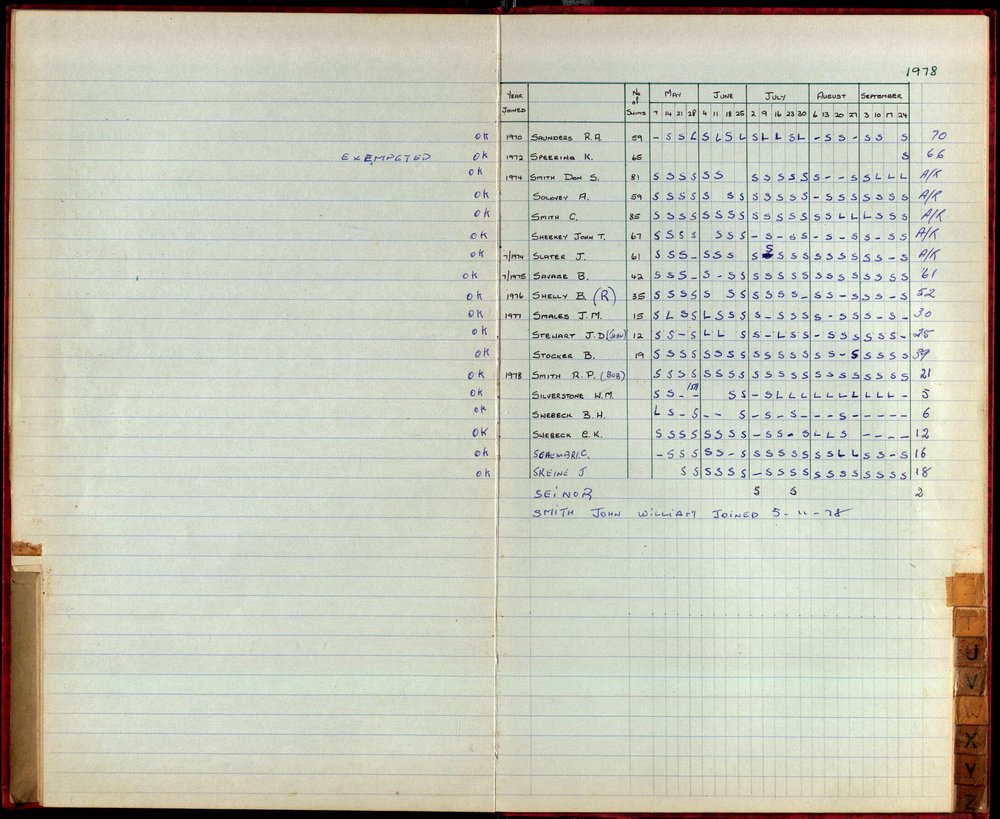 1978
YEAR JOINED No of SWIMS MAY JUNE JULY AUGUST SEPTEMBER
7 14 21 28 4 11 18 25 2 9 16 23 30 6 13 20 27 3 10 17 24
OK 1970 SAUNDERS R.A. 59 - S S L S L S L S L L S L - S S - S S S 70
EXEMPETED OK 1972 SPEERING K. 65 S 66
OK 1974 SMITH DON S. 81 S S S S S S S S S S S S - - S S L L L A/R
OK SOLOVEY A. 59 S S S S S S S S S S S S - S S S S S S S A/R
OK SMITH C. 85 S S S S S S S S S S S S S S S L L L S S S A/R
OK SHEEKEY JOHN T. 67 S S S S S S S - S - S S - S - S S - S S A/R
OK 7/1974 SLATER J. 61 S S S - S S S S S S S S S S S S S S - S A/R
OK 7/1975 SAVAGE B. 42 S S S - S - S S S S S S S S S S S S S S S 61
OK 1976 SHELLY B. (R) 35 S S S S S S S S S S S - S S - S S S - S 52
OK 1977 SMALES J.M. 15 S L S S L S S S S - S S S S - S S S - S - 30
OK STEWART J.D (JOHN) 12 S S - S L L S S - L S S - S S S S S S - 25
OK STOCKER B. 19 S S S S S S S S S S S S S S S - S S S S S 39
OK 1978 SMITH R.P. (BOB) S S S S S S S S S S S S S S S S S S S S S 21
OK SILVERSTONE W.M. S S - - S S - S L L L L L L L L L L L - 5
OK SWEBECK B.H. L S - S - - S - S - S - - - S - - - - - 6
OK SWEBECK C.K. S S S S S S S S - S S - S L L S - - - - 12
OK SCHEMBRI.C. - S S S S S - S S S S S S S S L L S S - S 16
OK SKEINE J S S S S S S - S S S S S S S S S S S S 18
SEINOR S S 2
SMITH JOHN WILLIAM JOINED 5-11-78
S
T
U
V
W
X
Y
Z